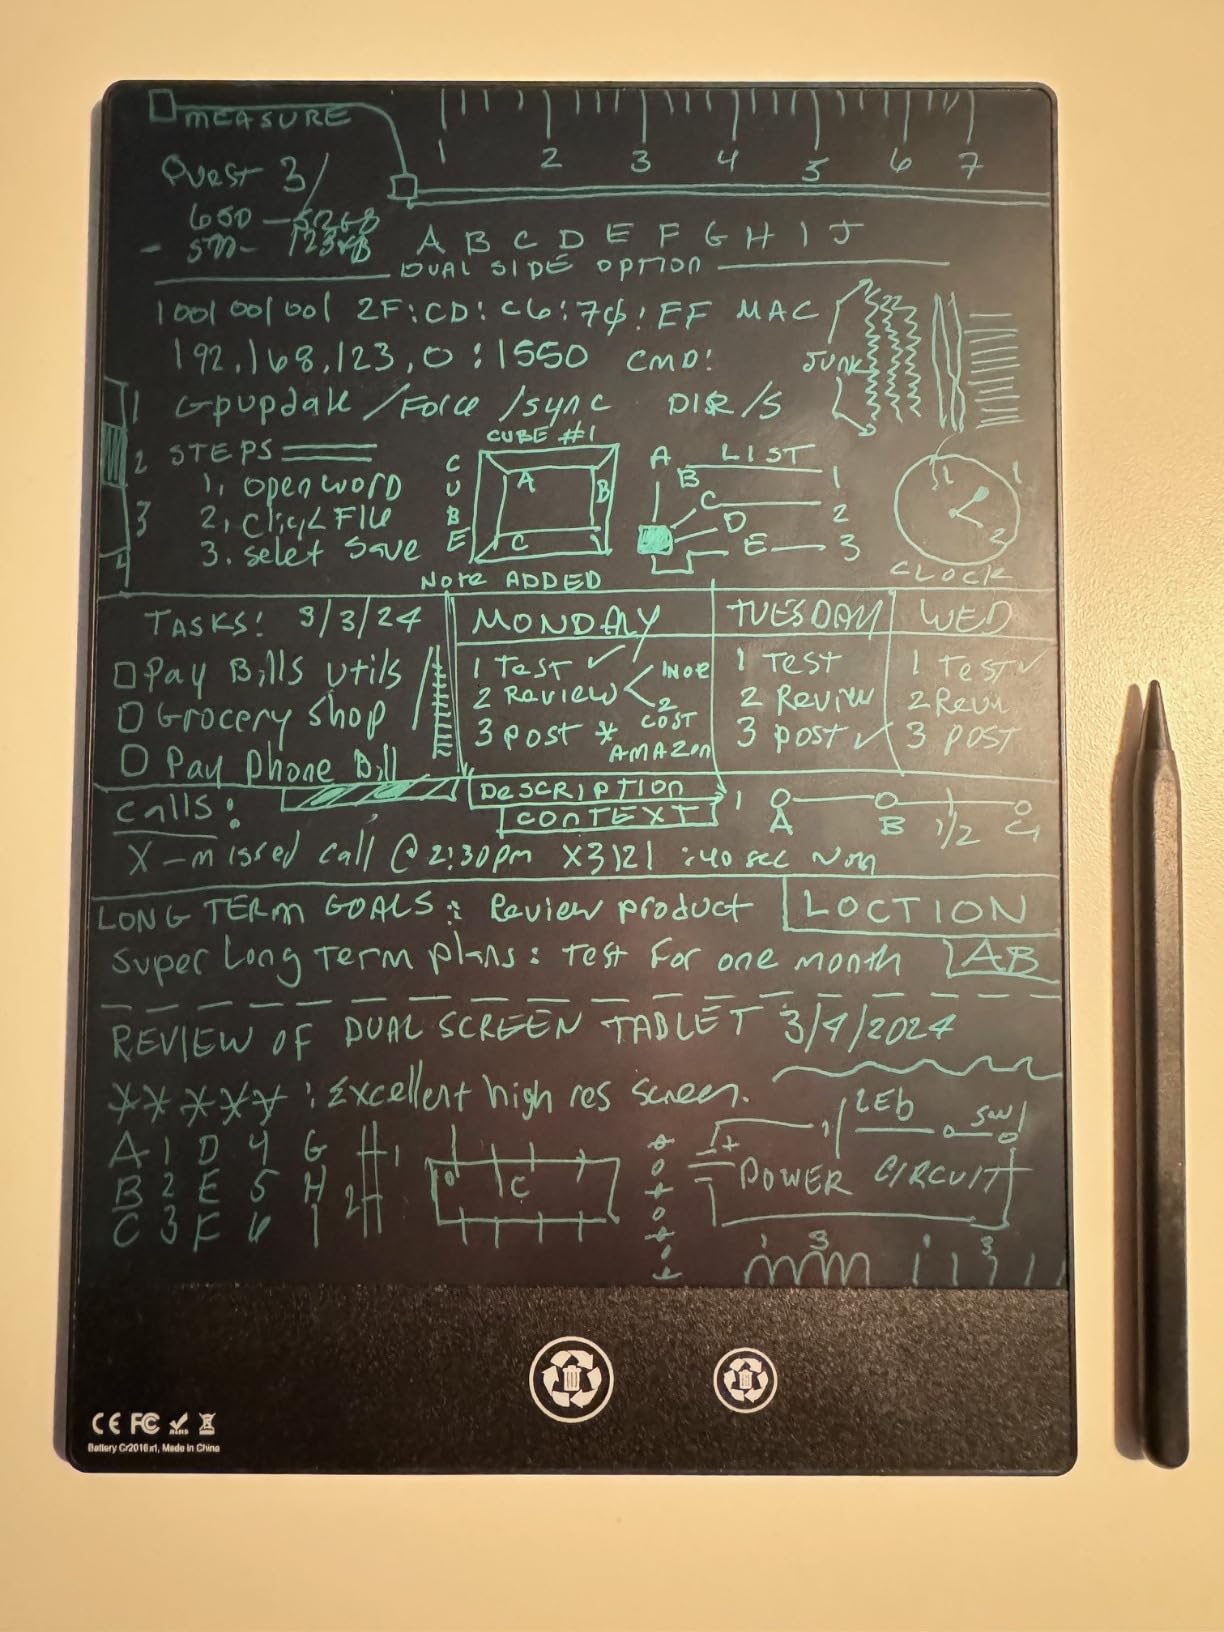 MEASURE
1 2 3 4 5 6 7
Quest 3/
650 - 512GB
- 500 - 128GB
A B C D E F G H I J
DUAL SIDE OPTION
1001 001 001 2F:CD:C6:70:EF MAC
192.168.123.0:1550 CMD:
JUNK
1 Gpupdate /Force /sync DIR /S
2 STEPS
1. open word
2. click File
3 3. Selet Save
4
CUBE #1
CUBE
A B
C
A LIST
B 1
C 2
D
E 3
1
2
CLOCK
Note ADDED
TASKS: 3/3/24
Pay Bills utils
Grocery shop
Pay Phone Bill
MONDAY
1 Test ✓
2 Review
3 post *
2
COST
AMAZON
TUESDAY
1 Test
2 Review
3 post ✓
WED
1 Test ✓
2 Revi
3 post
Calls:
DESCRIPTION
CONTEXT
1
A B 1/2 C
X - missed call @ 2:30pm X3121 :40 sec
LONG TERM GOALS: Review product LOCTION
Super Long Term plans: Test For one month AB
REVIEW OF DUAL SCREEN TABLET 3/4/2024
* * * * * : Excellent high res screen.
A 1 D 4 G
B 2 E 5 H
C 3 F 6 I
1
2
C
LED SW
+
POWER CIRCUIT
1 3 1 3
CE FC RoHS
Battery Cr2016 x1, Made in China